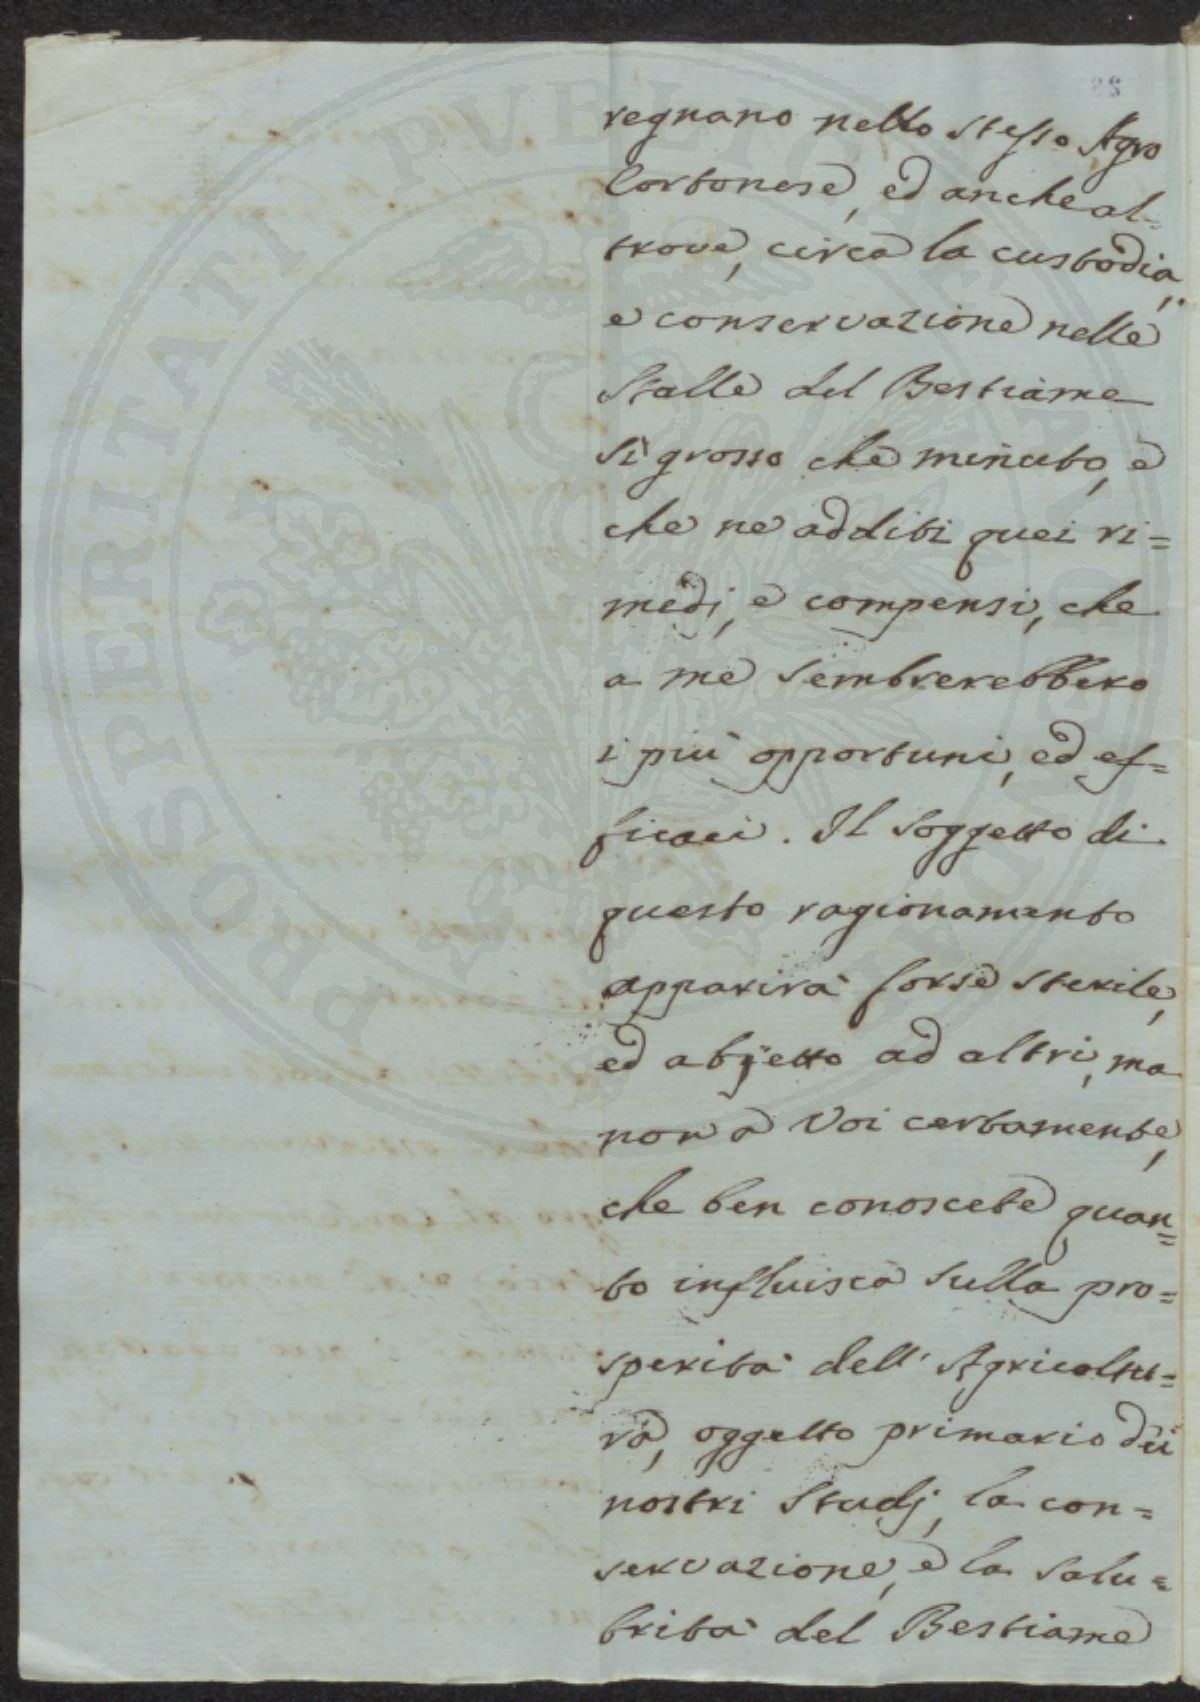 regnano nello stesso Agro
Cortonese, ed anche al=
trove, circa la custodia,
e conservazione nelle
Stalle del Bestiame
sì grosso che minuto, e
che ne additi quei ri=
medj, e compensi, che
a me sembrerebbero
i più opportuni, ed ef=
ficaci. Il soggetto di
questo ragionamento
apparirà forse sterile,
ed abjetto ad altri, ma
non a Voi certamente,
che ben conoscete quan=
to influisca sulla pro=
sperità dell' Agricoltu=
ra, oggetto primario dei
nostri Studj, la con=
servazione, e la salu=
brità del Bestiame
PROSPERITATI PUBLICAE AUGENDAE